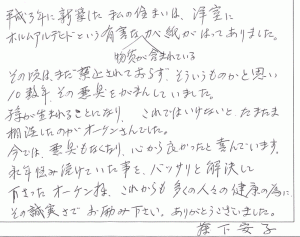 平成3年に新築した私の住まいは、洋室に
ホルムアルデヒドという有害な力べ紙がはってありました。
物質が含まれている
その頃は、まだ禁止されておらず、そういうものかと思い
10数年、その悪臭をがまんしていました。
孫が生まれることになり、これではいけないと、たまたま
相談したのがオーケンさんでした。
今では、悪臭もなくなり、心から良かったと喜んでいます。
永年悩み続けていた事を、バッサリと解決して
下さったオーケン様、これからも多くの人々の健康の為に、
その誠実さでお励み下さい。ありがとうございました。
下安子